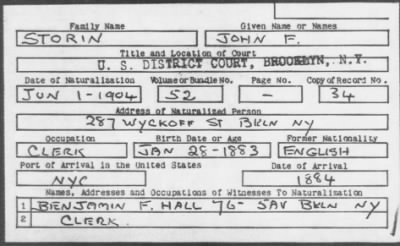 Family Name Given Name or Names
STORIN JOHN F.
Title and Location of Court
U. S. DISTRICT COURT, BROOKLYN, N.Y.
Date of Naturalization Volume or Bundle No. Page No. Copy of Record No.
JUN 1-1904 52 - 34
Address of Naturalized Person
287 WYCKOFF ST BKLN NY
Occupation Birth Date or Age Former Nationality
CLERK JAN 28-1883 ENGLISH
Port of Arrival in the United States Date of Arrival
NYC 1884
Names, Addresses and Occupations of Witnesses To Naturalization
1 BENJAMIN F. HALL 76- 5AV BKLN NY
2 CLERK